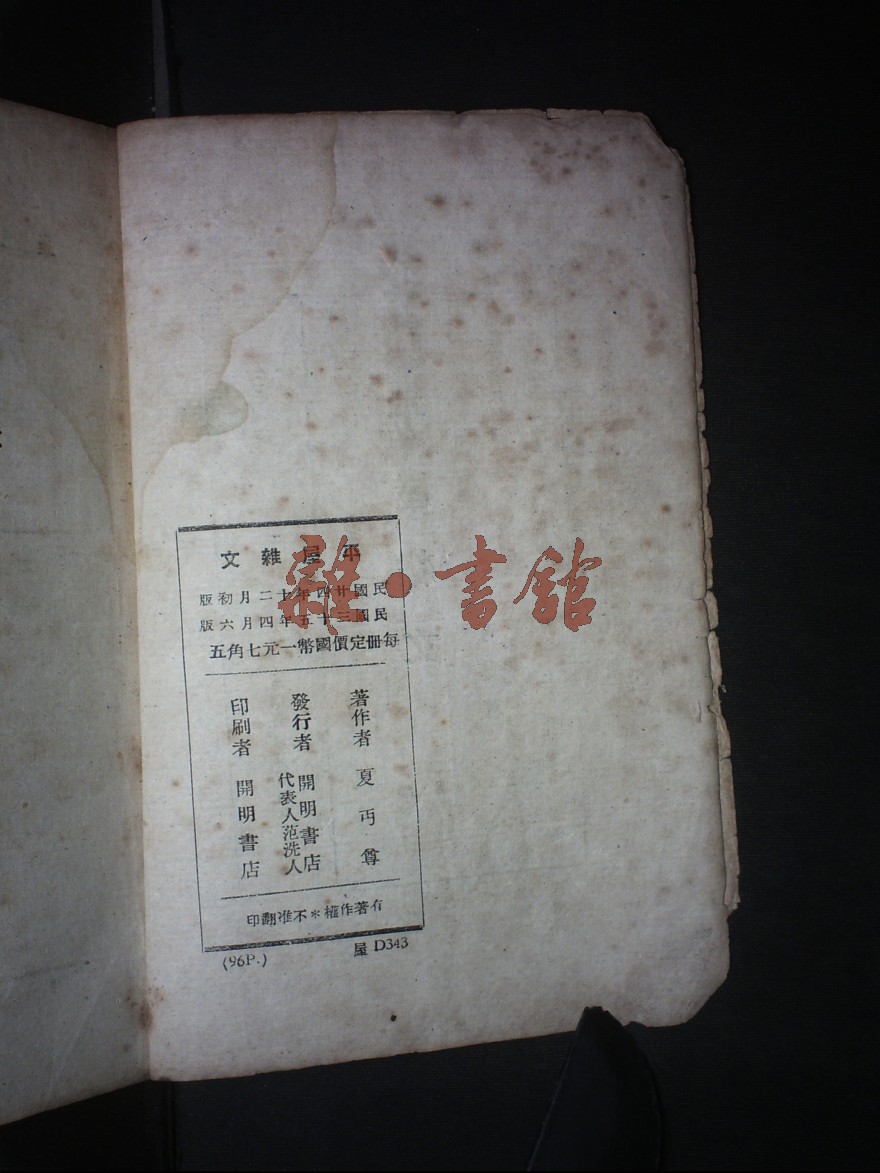 平屋雜文
民國廿四年十二月初版
民國三十五年四月六版
每冊定價國幣一元七角五
著作者 夏丏尊
發行者 開明書店
代表人范洗人
印刷者 開明書店
有著作權＊不准翻印
(96P.)
屋 D343
雜·書館